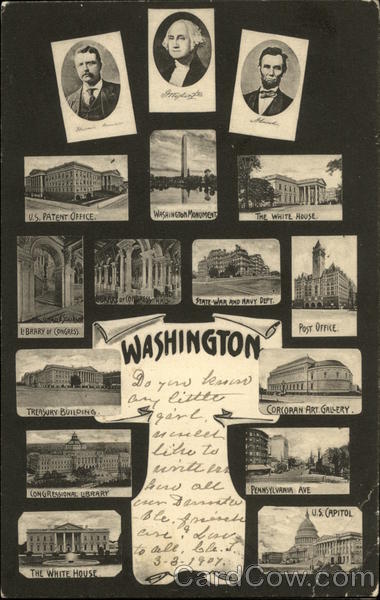 G Washington
A. Lincoln
U.S. PATENT OFFICE.
WASHINGTON MONUMENT
THE WHITE HOUSE.
LIBRARY OF CONGRESS.
LIBRARY OF CONGRESS.
STATE WAR AND NAVY DEPT.
POST OFFICE.
WASHINGTON
TREASURY BUILDING.
CORCORAN ART GALLERY.
CONGRESSIONAL LIBRARY
PENNSYLVANIA AVE
THE WHITE HOUSE.
U.S. CAPITOL
Do you know
any little
girl
like to
how all
our
ble. friends
are? Love
to all.
3-3-1907.
CardCow.com